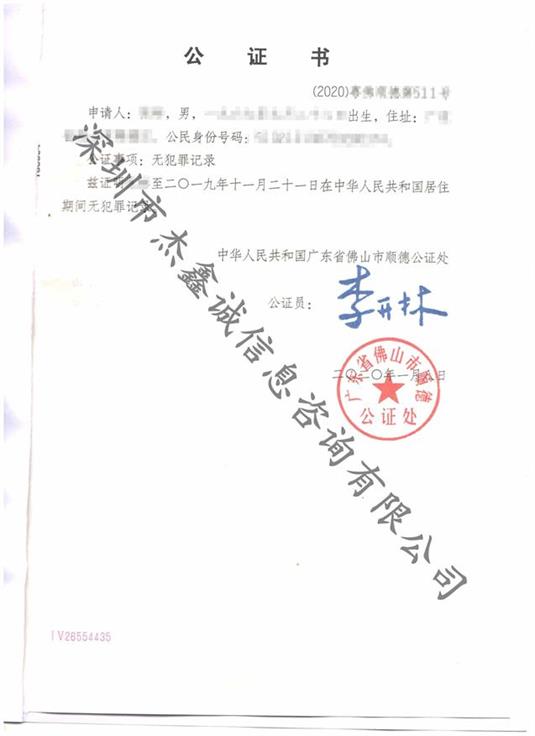 公 证 书
(2020)粤佛顺德第511号
申请人： ，男， 出生，住址：
公民身份号码：
公证事项：无犯罪记录
兹证明 至二〇一九年十一月二十一日在中华人民共和国居住
期间无犯罪记录。
中华人民共和国广东省佛山市顺德公证处
公证员：
李开林
二〇二〇年一月八日
广东省佛山市顺德
公证处
深圳市杰鑫诚信息咨询有限公司
IV26554435